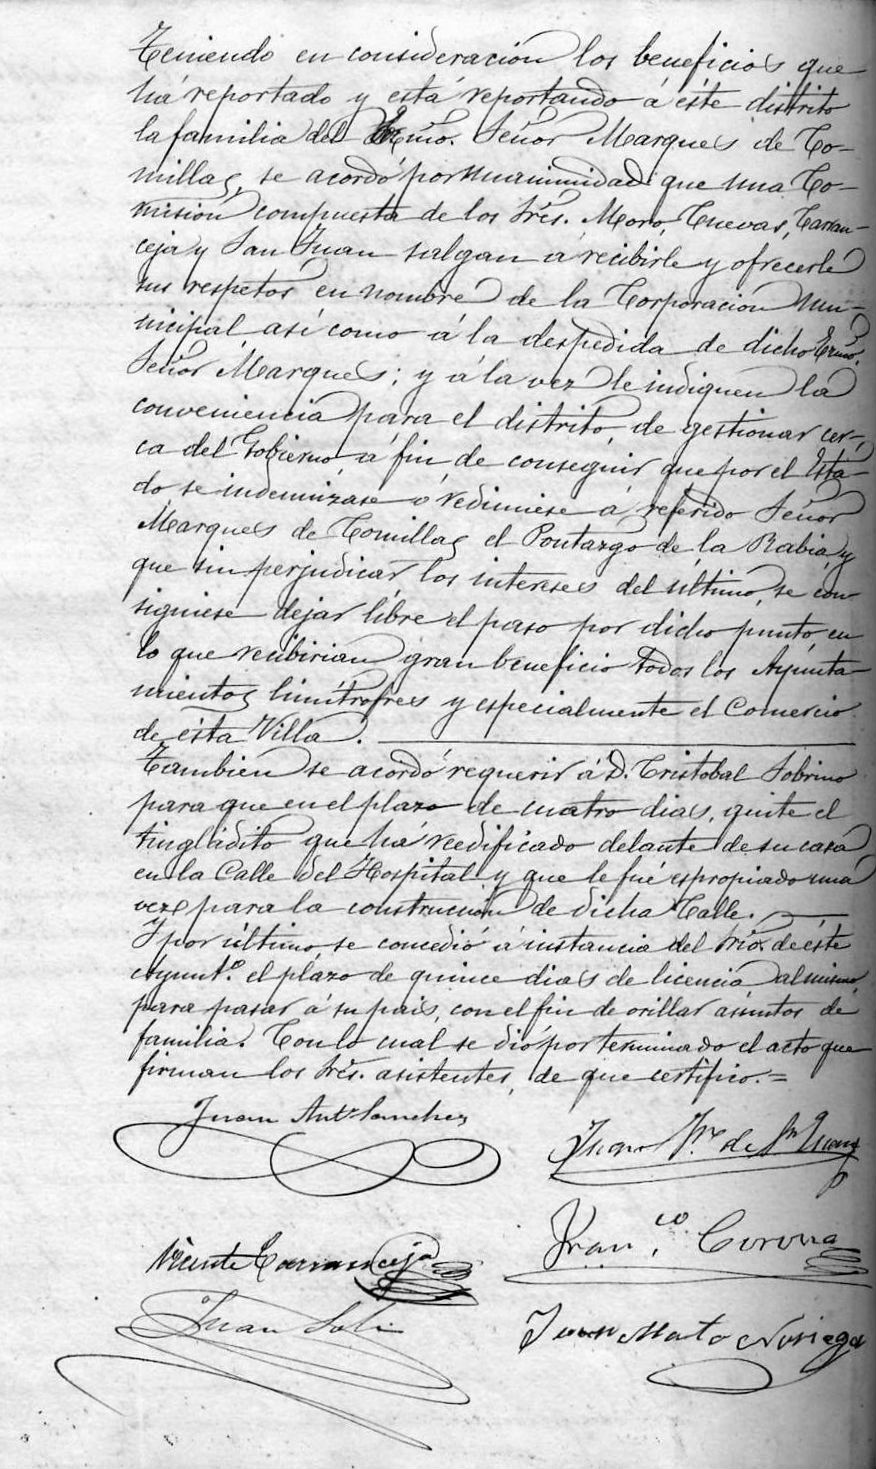 Teniendo en consideración los beneficios que
há reportado y está reportando á éste distrito
la familia del Excmo. Señor Marques de Co-
millas, se acordó por unanimidad que una Co-
misión compuesta de los Srēs. Moro, Cuevas, Carran-
ceja y San Juan salgan á recibirle y ofrecerle
sus respetos en nombre de la Corporacion Mu-
nicipal así como á la despedida de dicho Excmo.
Señor Marques; y á la vez le indiquen la
conveniencia para el distrito, de gestionar cer-
ca del Gobierno á fin de conseguir que por el Esta-
do se indemnizase ó redimiese á referido Señor
Marques de Comillas el Pontazgo de la Rabia, y
que sin perjudicar los intereses del último, se con-
siguiese dejar libre el paso por dicho punto, en
lo que recibirian gran beneficio todos los Ayunta-
mientos limítrofres y especialmente el Comercio
de esta Villa.
Tambien se acordó requerir á D. Cristobal Sobrino
para que en el plazo de cuatro dias, quite el
tingladito que há reedificado delante de su casa
en la Calle del Hospital y que le fué espropiado una
vez para la construcción de dicha Calle.
Y por último se concedió á instancia del Srio. de éste
Ayuntº. el plazo de quince dias de licencia al mismo
para pasar á su pais, con el fin de orillar asuntos de
familia. Con lo cual se dió por terminado el acto que
firman los Srēs. asistentes, de que certifico.=
Juan Antº Sanchez
Juan Fr. de Sn Juan
Vicente Carranceja
Franco. Corona
Juan
Juan Mata Noriega